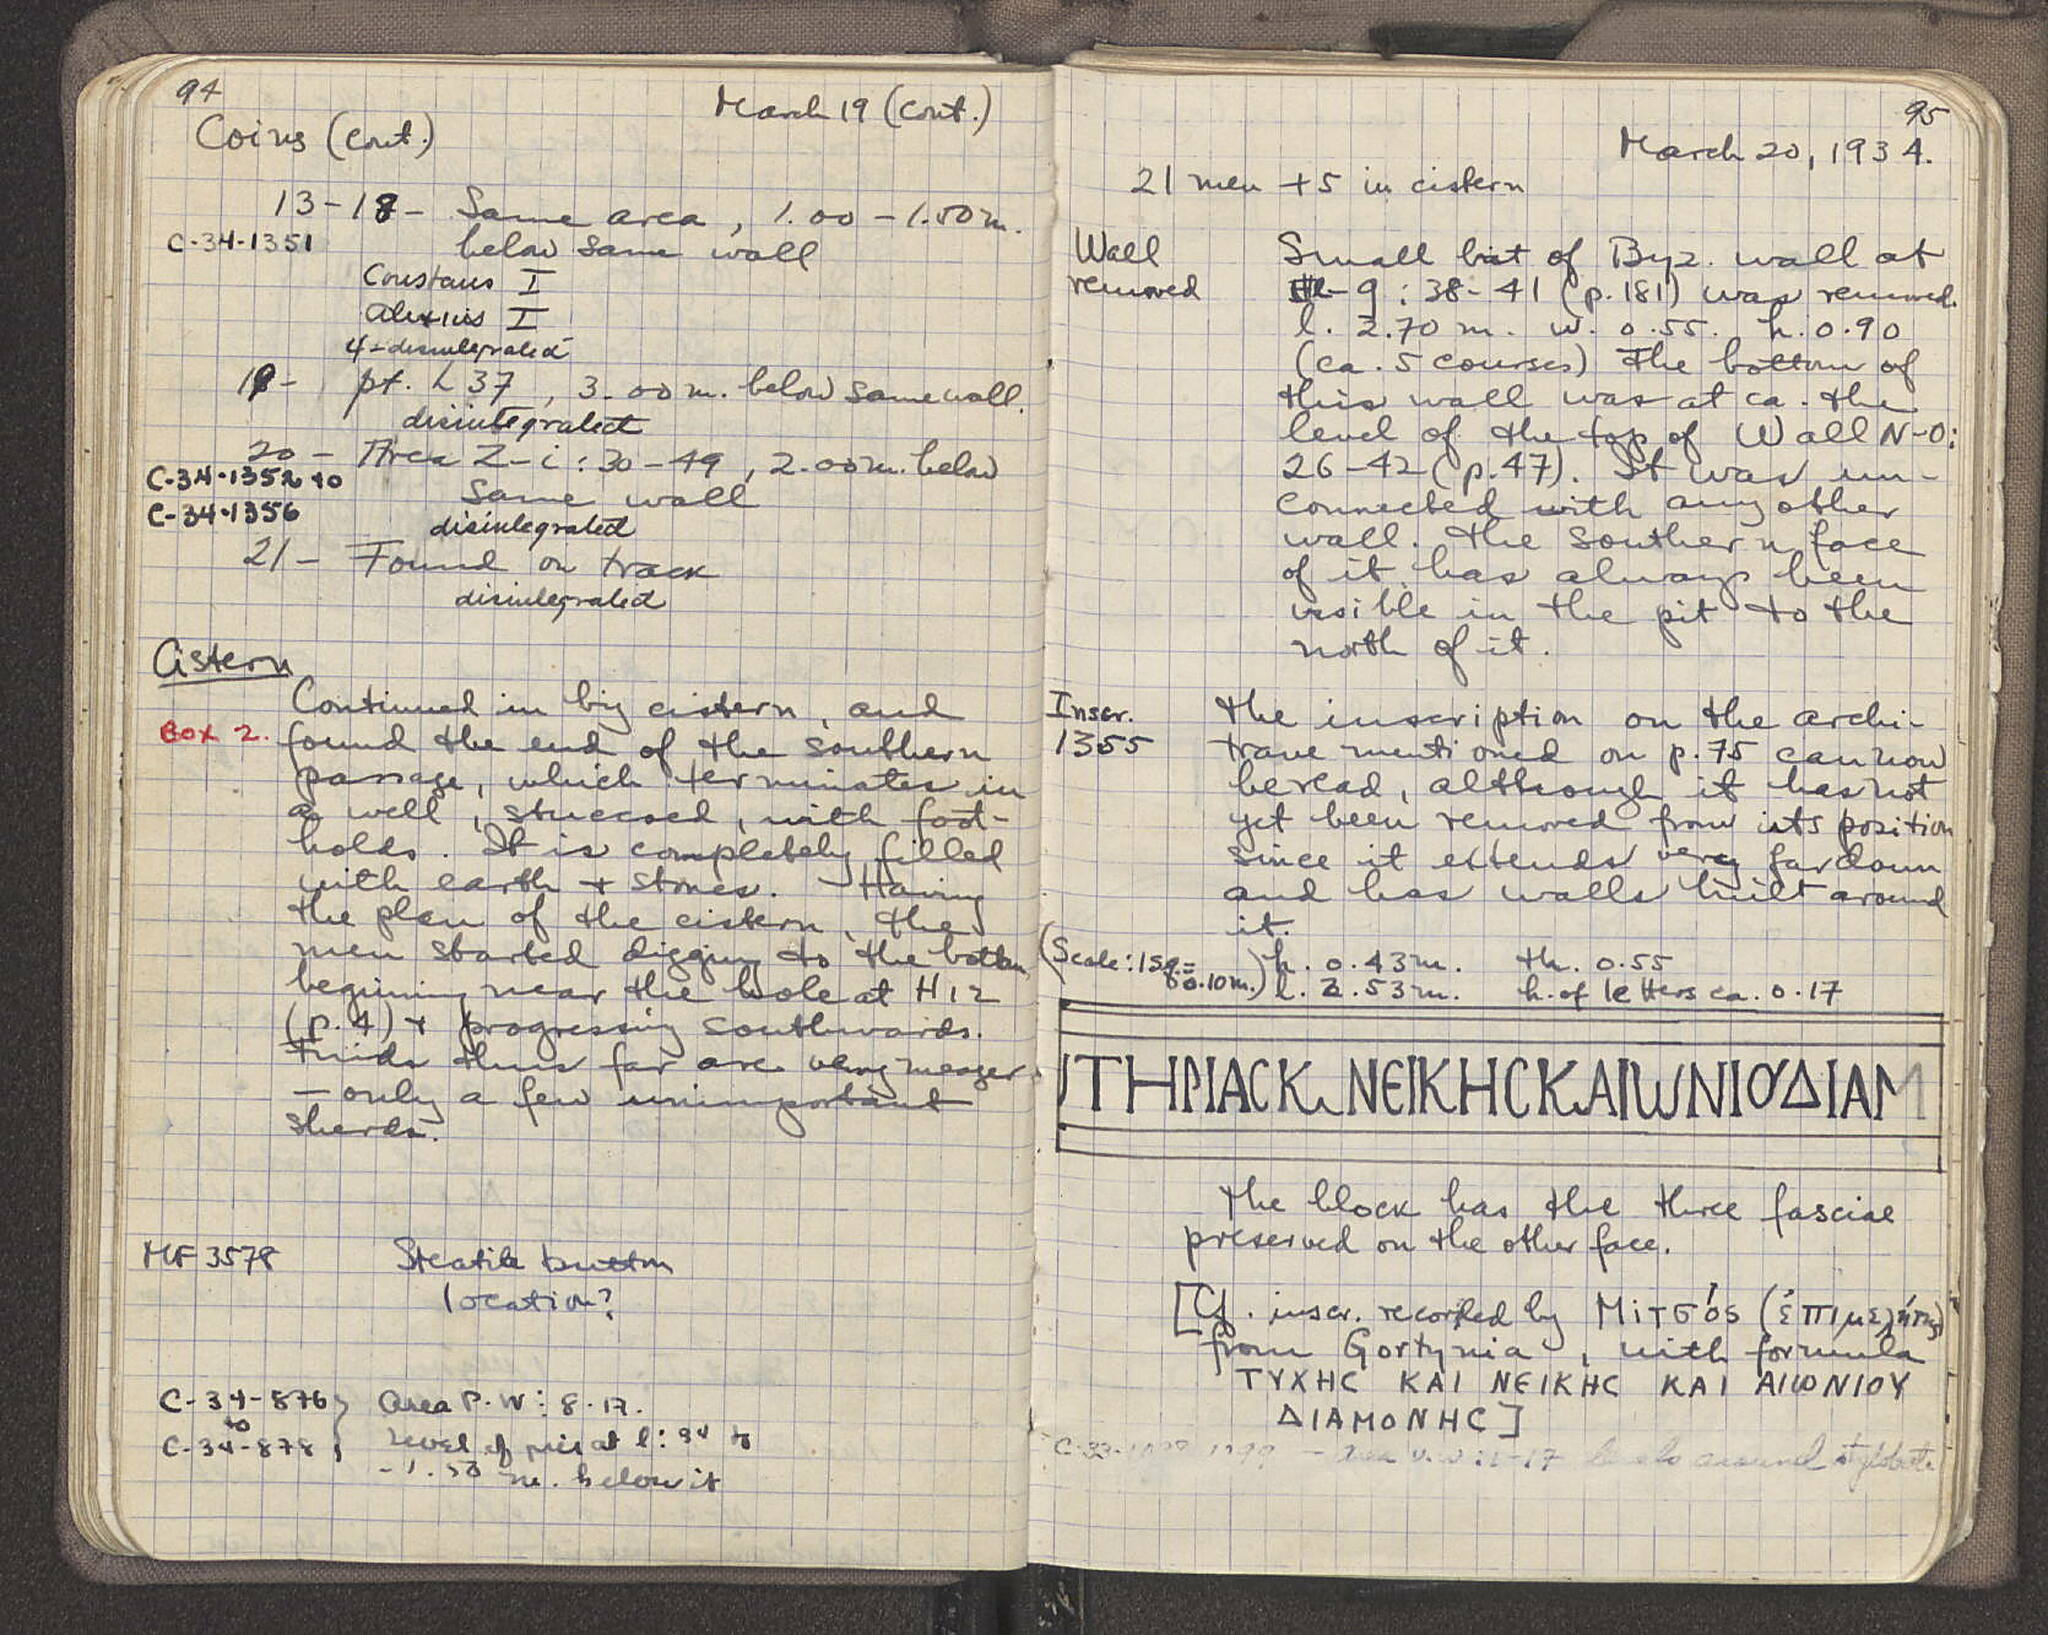 94
March 19 (cont.)
Coins (cont.)
13-18 - Same area, 1.00 - 1.50 m.
C-34-1351
below same wall
Constans I
Alexius I
4 - disintegrated
19 - pt. L 37, 3.00 m. below same wall.
disintegrated
20 - Area Z-i : 30-49, 2.00 m. below
C-34-1352 to
same wall
C-34-1356
disintegrated
21 - Found on track
disintegrated
Cistern
Continued in big cistern, and
BOX 2.
found the end of the southern
passage, which terminates in
a well, stuccoed, with foot-
holds. It is completely filled
with earth + stones. Having
the plan of the cistern, the
men started digging to the bottom
beginning near the hole at H12
(p. 4) + progressing southwards.
Finds thus far are very meager
- only a few unimportant
sherds.
MF 3578
Steatite button
location?
C-34-876
to
C-34-878
Area P-W : 8-17.
Level of at l: 34 to
-1.50 m. below it
95
March 20, 1934.
21 men + 5 in cistern
Wall
removed
Small bit of Byz. wall at
-9 : 38-41 (p. 181) was removed.
l. 2.70 m. w. 0.55. h. 0.90
(ca. 5 courses) The bottom of
this wall was at ca. the
level of the top of Wall N-O:
26-42 (p. 47). It was un-
connected with any other
wall. The southern face
of it has always been
visible in the pit to the
north of it.
Inscr.
1355
The inscription on the archi-
trave mentioned on p. 75 can now
be read, although it has not
yet been removed from its position
since it extends very far down
and has walls built around
it.
(Scale: 1 sq. = 0.10 m.)
h. 0.43 m. th. 0.55
l. 2.53 m. h. of letters ca. 0.17
ΤΗΡΙΑϹΚ ΝΕΙΚΗϹΚΑΙωΝΙΟΥΔΙΑΜ
The block has the three fasciae
preserved on the other face.
[Cf. inscr. recorded by Μιτσός (ἐπιμελητής)
from Gortynia, with formula
ΤΥΧΗϹ ΚΑΙ ΝΕΙΚΗϹ ΚΑΙ ΑΙωΝΙΟΥ
ΔΙΑΜΟΝΗϹ]
around